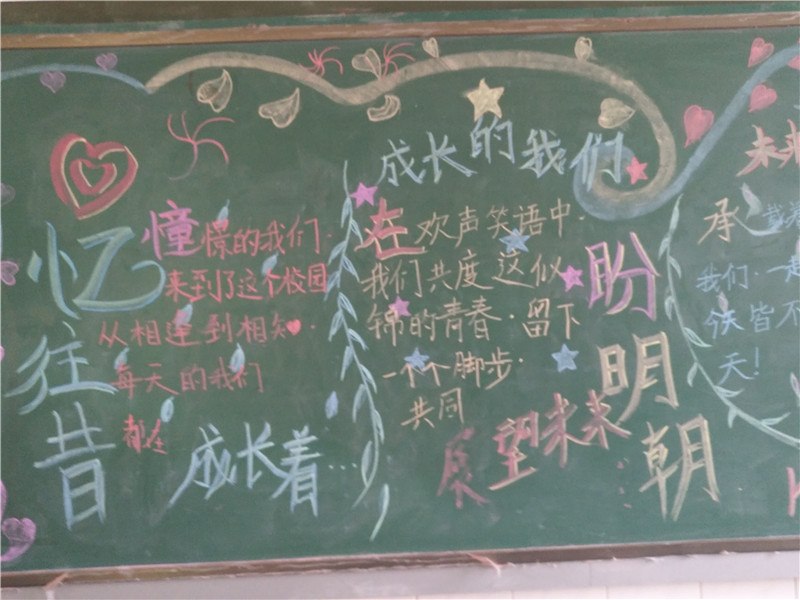 忆往昔
憧憬的我们.
来到了这个校园
从相逢到相知.
每天的我们
都在
成长着...
成长的我们
在欢声笑语中.
我们共度这似
锦的青春.留下
一个个脚步.
共同
展望未来...
盼明朝
未来
承载着
我们.一起
今天皆不
天!